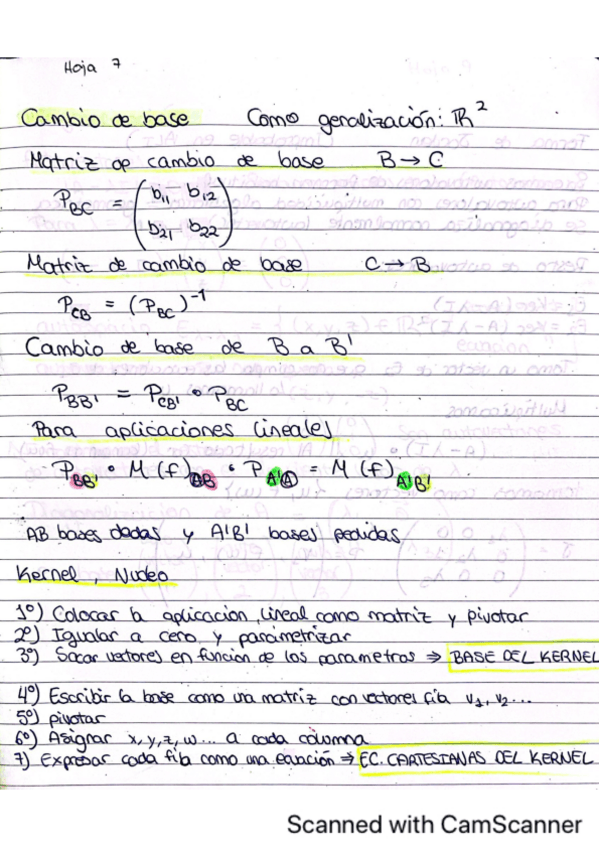 Hoja 7
Cambio de base Como genralización: ℝ²
Matriz de cambio de base B → C
P_BC = (b₁₁ b₁₂
b₂₁ b₂₂)
Matriz de cambio de base C → B
P_CB = (P_BC)⁻¹
Cambio de base de B a B'
P_BB' = P_CB' • P_BC
Para aplicaciones lineales
P_BB' • M(f)_AB • P_A'A = M(f)_A'B'
AB bases dadas y A'B' bases pedidas
Kernel, Nucleo
1º) Colocar la aplicación lineal como matriz y pivotar
2º) Igualar a cero y parametrizar
3º) Sacar vectores en función de los parametros ⇒ BASE DEL KERNEL
4º) Escribir la base como una matriz con vectores fila v₁, v₂...
5º) pivotar
6º) Asignar x, y, z, w... a cada columna
7) Expresar cada fila como una ecuación ⇒ EC. CARTESIANAS DEL KERNEL
Scanned with CamScanner